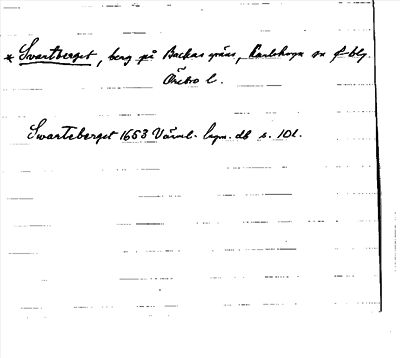 * Svartberget, berg på Backas gräns, Karlskoga sn o f-blg.
Örebro l.
Svarteberget 1653 Värml. lagm. db s. 101.